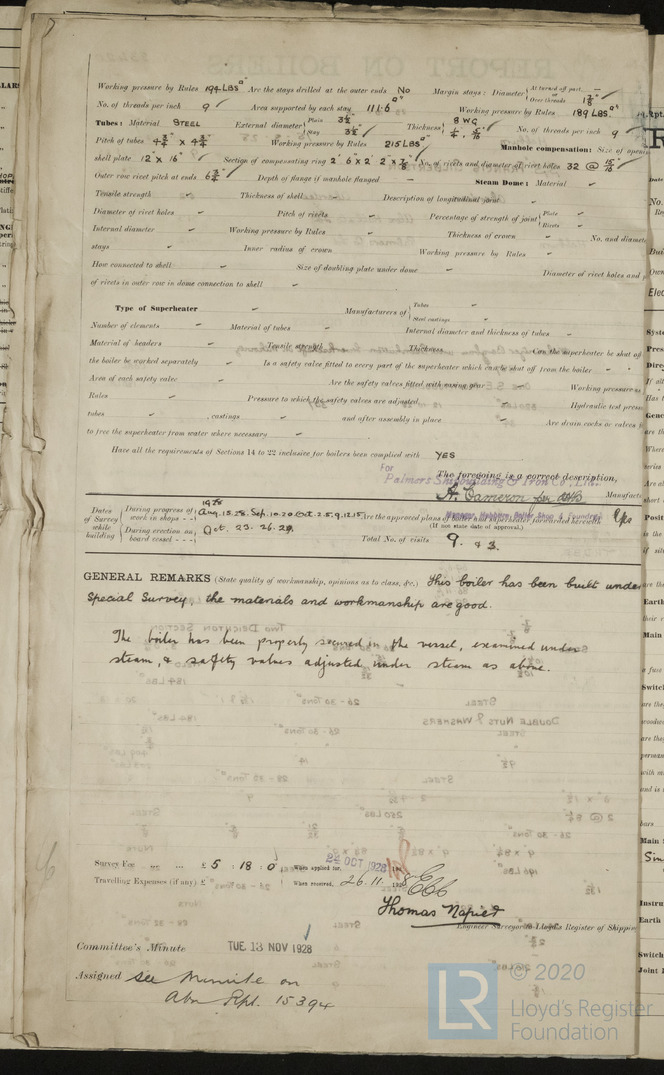 Working pressure by Rules 194 LBS □" Are the stays drilled at the outer ends No Margin stays: Diameter { At turned off part, — or Over threads 1 7/8"
No. of threads per inch 9 ✓ Area supported by each stay 111.6 □" Working pressure by Rules 189 LBS. □"
Tubes: Material STEEL External diameter { Plain 3 1/2" Stay 3 1/2" ✓ Thickness { 8 WG 1/4", 5/16" ✓ No. of threads per inch 9
Pitch of tubes 4 3/4" x 4 3/4" Working pressure by Rules 215 LBS □" ✓ Manhole compensation: Size of
shell plate 12" x 16" ✓ Section of compensating ring No. of rivets and diameter of rivet holes 32 @ 15/16"
Outer row rivet pitch at ends ✓ Depth of flange if manhole flanged — Steam Dome: Material —
Tensile strength — Thickness of shell — Description of longitudinal joint —
Diameter of rivet holes — Pitch of rivets — Percentage of strength of joint { Plate — Rivets —
Internal diameter — Working pressure by Rules — Thickness of crown — No. and
stays — Inner radius of crown — Working pressure by Rules —
How connected to shell — Size of doubling plate under dome — Diameter of rivet holes and
of rivets in outer row in dome connection to shell —
Type of Superheater — Manufacturers of { Tubes — Steel castings —
Number of elements — Material of tubes — Internal diameter and thickness of tubes —
Material of headers — Tensile strength — Thickness — Can the superheater be shut off
the boiler be worked separately — Is a safety valve fitted to every part of the superheater which can be shut off from the boiler —
Area of each safety valve — Are the safety valves fitted with easing gear — Working pressure as
Rules — Pressure to which the safety valves are adjusted — Hydraulic test
tubes — , castings — and after assembly in place — Are drain cocks or valves
to free the superheater from water where necessary —
Have all the requirements of Sections 14 to 22 inclusive for boilers been complied with YES
The foregoing is a correct description,
For Palmers Shipbuilding & Iron Co., Ltd.
A. Cameron
Dates of Survey while building { During progress of work in shops - - 1928 Aug. 15. 28. Sep. 10. 20. Oct. 2. 5. 9. 12. 15. Are the approved plans of boiler and superheater forwarded herewith Yes
(If not state date of approval.)
During erection on board vessel - - - Oct. 23. 26. 29. Total No. of visits 9. & 3.
GENERAL REMARKS (State quality of workmanship, opinions as to class, &c.) This boiler has been built under
Special Survey, the materials and workmanship are good.
The boiler has been properly secured in the vessel, examined under
steam, & safety valves adjusted under steam as above.
Survey Fee ... ... £ 5 : 18 : 0 When applied for, OCT 1928
Travelling Expenses (if any) £ When received, 26.11. 1928
Thomas Napier
Engineer Surveyor to Lloyd's Register of Shipping
Committee's Minute TUE. 13 NOV 1928
Assigned See Minute on
Abn Rpt. 15394
© 2020
LR Lloyd's Register
Foundation